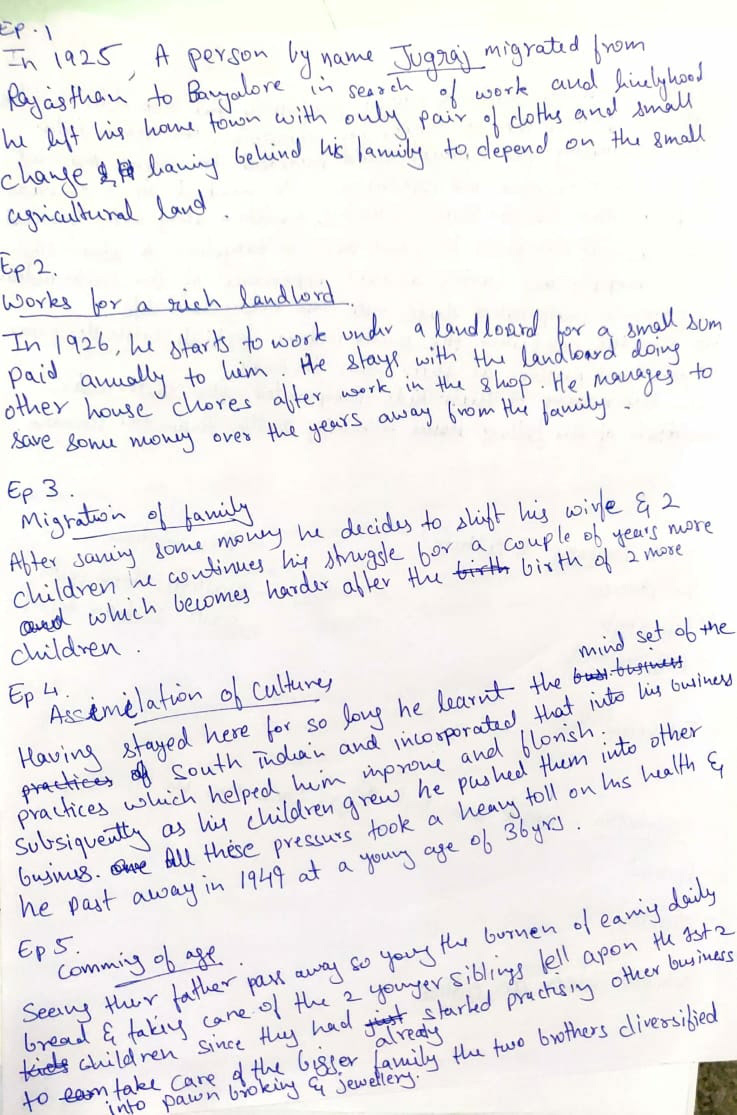 Ep.1
In 1925, A person by name Jugraj migrated from
Rajasthan to Bangalore in search of work and livelyhood
he left his home town with only pair of cloths and small
change leaving behind his family to depend on the small
agricultural land.
Ep 2.
Works for a rich landlord.
In 1926, he starts to work under a landloard for a small sum
paid anually to him. He stays with the landloard doing
other house chores after work in the shop. He manages to
save some money over the years away from the family.
Ep 3.
Migration of family
After saving some money he decides to shift his wife & 2
children he continues his struggle for a couple of years more
and which becomes harder after the birth birth of 2 more
children.
Ep 4.
Assimilation of Cultures
mind set of the
Having stayed here for so long he learnt the busi business
practices of South Indian and incorporated that into his business
practices which helped him improve and florish.
Subsiquently as his children grew he pushed them into other
busines. One All these pressurs took a heavy toll on his health &
he past away in 1949 at a young age of 36yrs.
Ep 5.
Comming of age.
Seeing their father pass away so young the burnen of earnig daily
bread & taking care of the 2 younger siblings fell apon the 1st 2
kids children since they had just started practising other business
already
to earn take care of the bigger family the two brothers diversified
into pawn broking & jewellery.